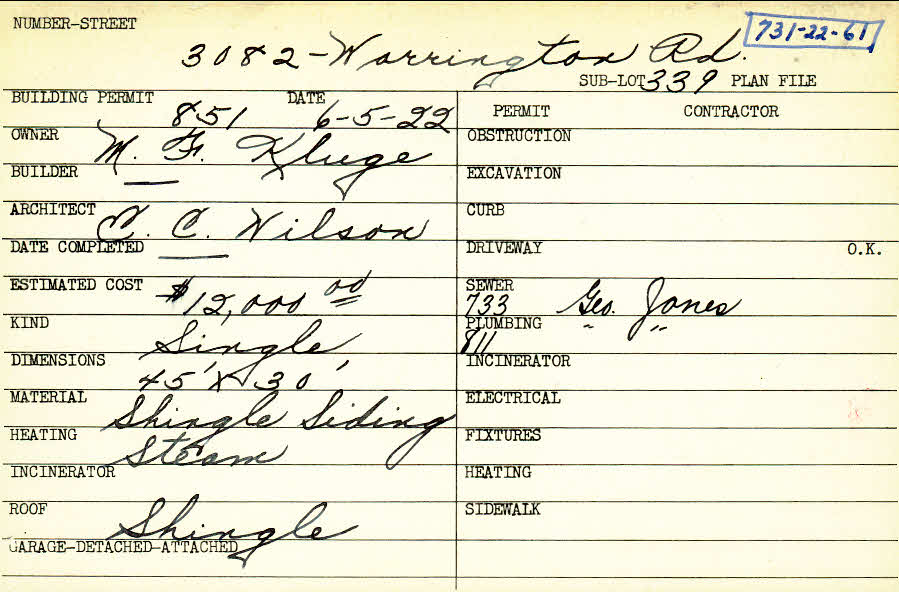 NUMBER-STREET
731-22-61
3082-Warrington Rd.
SUB-LOT 339 PLAN FILE
BUILDING PERMIT 851 DATE 6-5-22
OWNER M. F. Kluge
BUILDER —
ARCHITECT C. C. Wilson
DATE COMPLETED —
ESTIMATED COST $12,000 00
KIND Single
DIMENSIONS 45' X 30'
MATERIAL Shingle Siding
HEATING Steam
INCINERATOR
ROOF Shingle
GARAGE-DETACHED-ATTACHED
PERMIT CONTRACTOR
OBSTRUCTION
EXCAVATION
CURB
DRIVEWAY O.K.
SEWER 733 Geo. Jones
PLUMBING 811 " "
INCINERATOR
ELECTRICAL
FIXTURES
HEATING
SIDEWALK